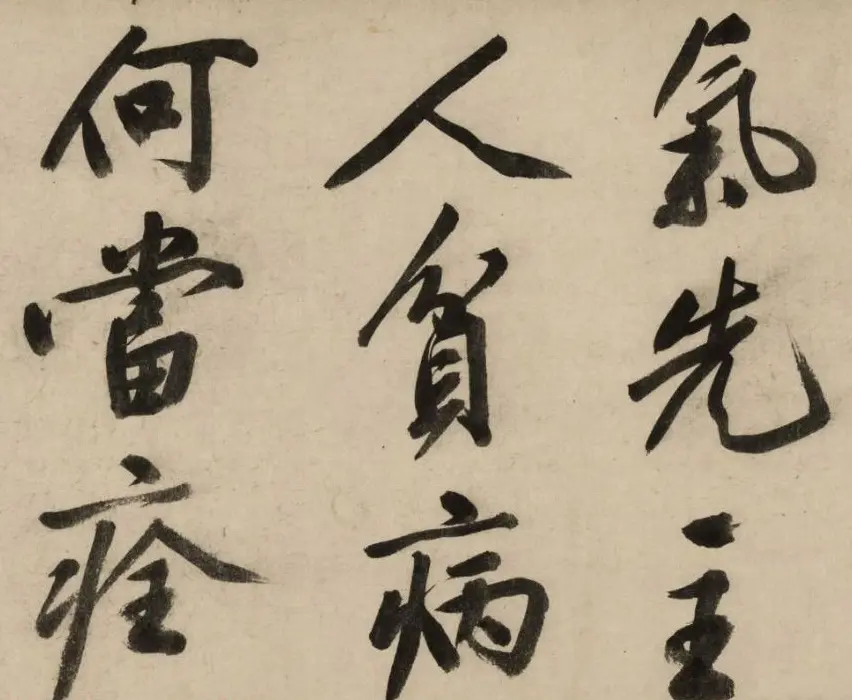 氣先主
人貧病
何當痊